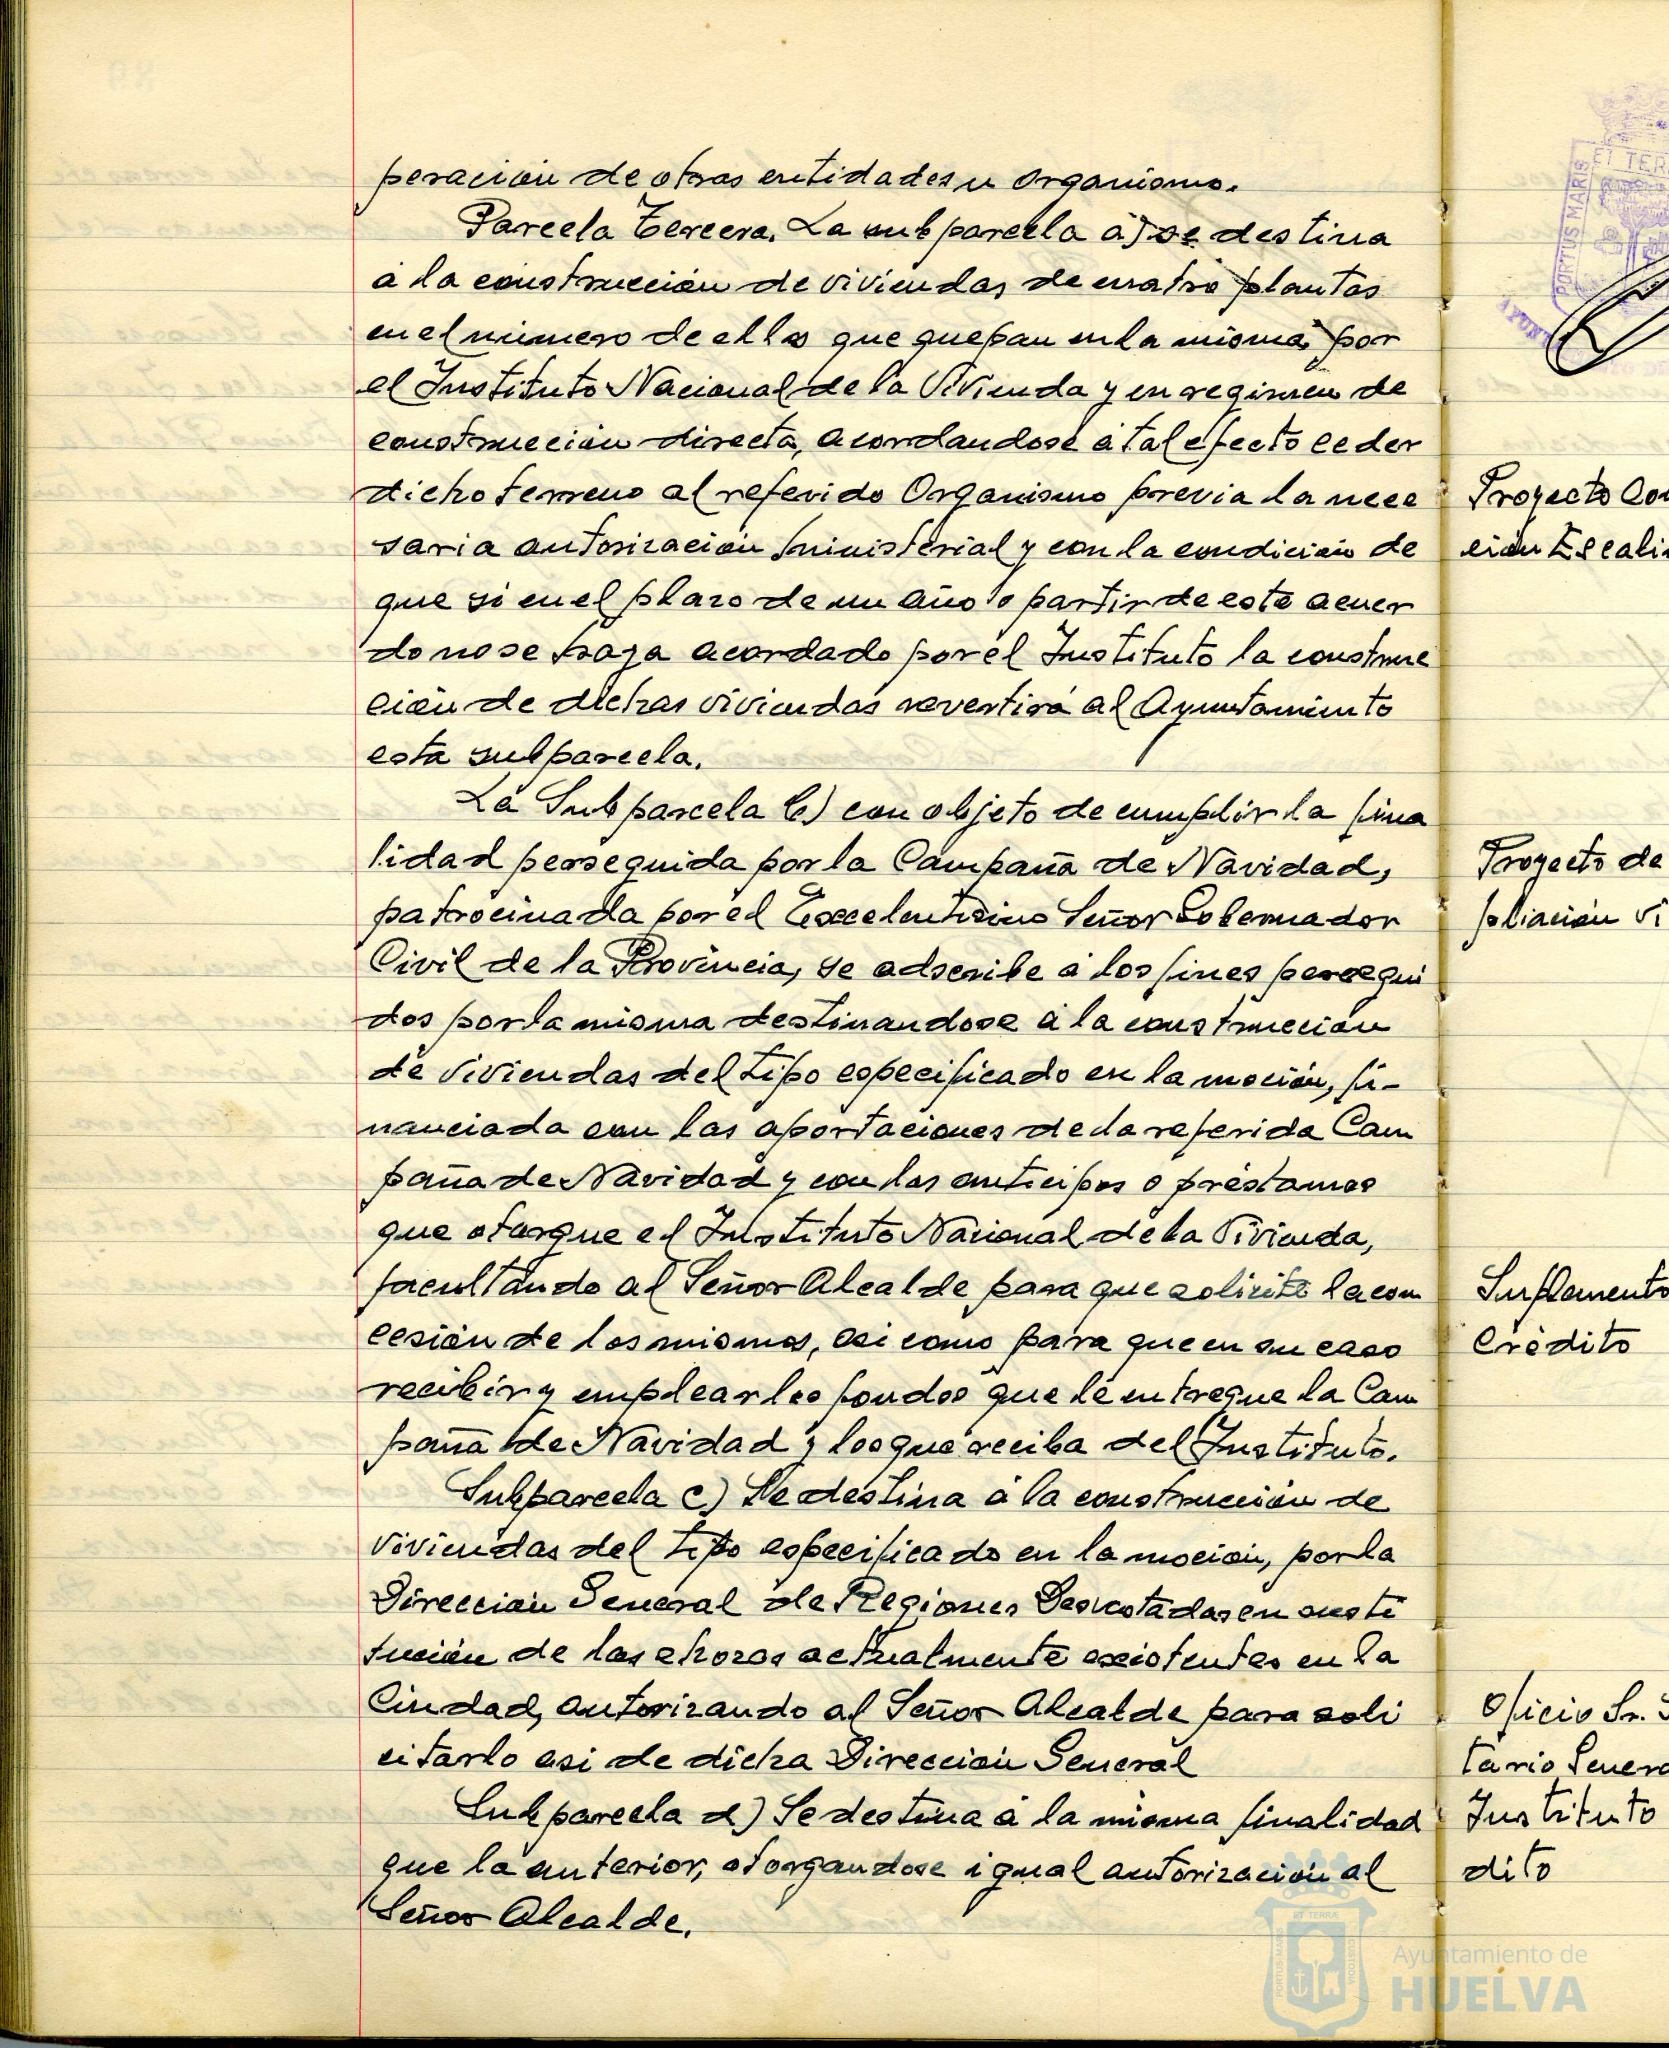 peracion de otras entidades u organismo.
Parcela Tercera. La subparcela a) se destina
a la construccion de viviendas de cuatro plantas
en el numero de ellas que quepan en la misma, por
el Instituto Nacional de la Vivienda y en regimen de
construccion directa, acordandose a tal efecto ceder
dicho terreno al referido Organismo previa la nece
saria autorizacion ministerial y con la condicion de
que si en el plazo de un año a partir de este acuer
do no se haya acordado por el Instituto la construc
cion de dichas viviendas revertira al Ayuntamiento
esta subparcela.
La Subparcela b) con objeto de cumplir la fina
lidad perseguida por la Campaña de Navidad,
patrocinada por el Excelentisimo Señor Gobernador
Civil de la Provincia, se adscribe a los fines persegui
dos por la misma destinandose a la construccion
de viviendas del tipo especificado en la mocion, fi-
nanciada con las aportaciones de la referida Cam
paña de Navidad y con los anticipos o préstamos
que otorgue el Instituto Nacional de la Vivienda,
facultando al Señor Alcalde para que solicite la con
cesión de los mismos, asi como para que en su caso
recibir y emplear los fondos que le entregue la Cam
paña de Navidad y los que reciba del Instituto.
Subparcela c) Se destina a la construccion de
viviendas del tipo especificado en la mocion, por la
Direccion General de Regiones Devastadas en susti
tucion de las chozas actualmente existentes en la
Ciudad, autorizando al Señor Alcalde para soli
citarlo asi de dicha Direccion General
Subparcela d) Se destina a la misma finalidad
que la anterior, otorgandose igual autorizacion al
Señor Alcalde.
ET TER
PORTUS MARIS
Proyecto Con
cion Escali
Proyecto de
pliacion Vi
Suplemento
Crédito
Oficio Sr. S
tario Genera
Instituto
dito
Ayuntamiento de
HUELVA